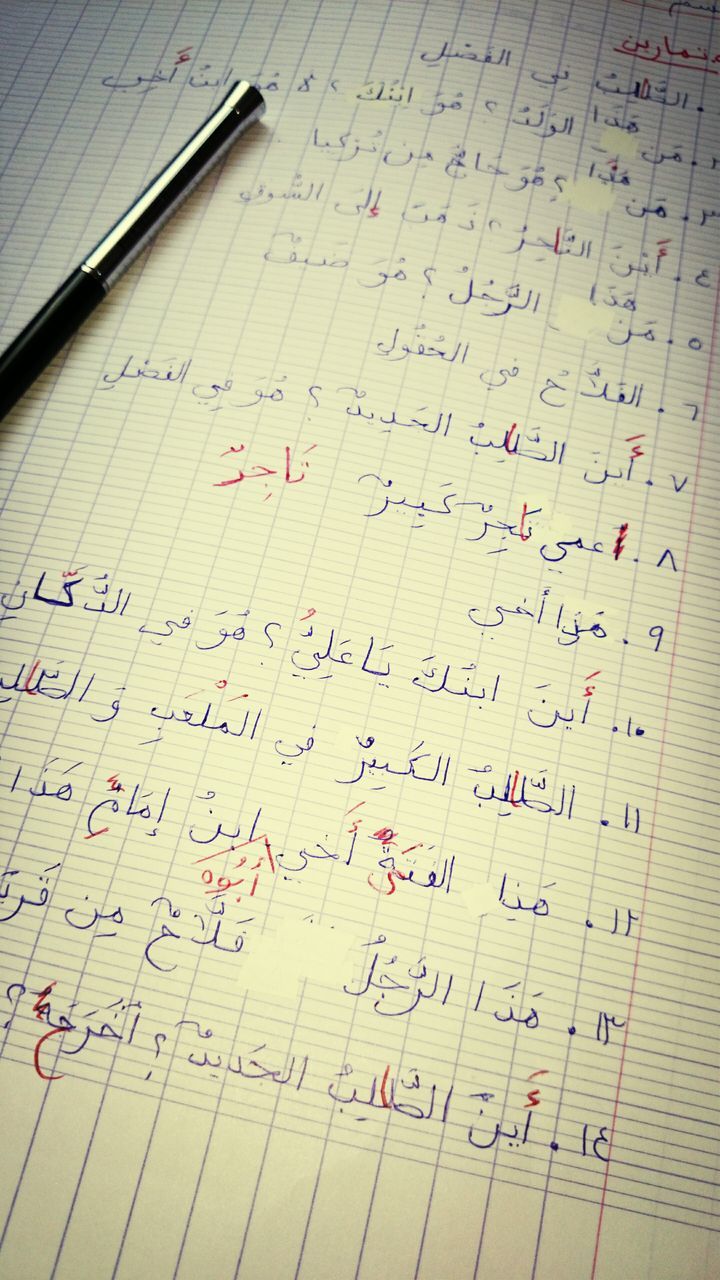 تمارين
الطالبُ في الفَصْلِ
٢. مَن هَذَا الوَلَدُ؟ هُوَ ابْنُكَ؟ لا هُوَ ابنُ أَخِي
٣. مَن هَذَا؟ هُوَ حَاجٌّ مِن تُركِيا
٤. أَيْنَ التَّاجِرُ؟ ذَهَبَ إِلَى السُّوقِ
٥. مَن هَذَا الرَّجُلُ؟ هُوَ ضَيفٌ
٦. الفَلاَّحُ في الحُقُولِ
٧. أَينَ الطَّالِبُ الجَدِيدُ؟ هُوَ فِي الفَصْلِ
٨. عمي تَاجِرٌ كَبِيرٌ تَاجِرٌ
٩. هَذَا أَخي
١٠. أَينَ ابنُكَ يَا عَلِيُّ؟ هُوَ في الدُّكَّانِ
١١. الطَّالِبُ الكَبِيرُ في المَلْعَبِ وَ
١٢. الفَتَى أَخي ابنُ إِمَامِ هَذَا
١٣. هَذَا الرَّجُلُ أَبُوه فَلَّاحٌ مِن
١٤. أَينَ الطَّالِبُ الجَديدُ؟ أَخَرَجَ؟